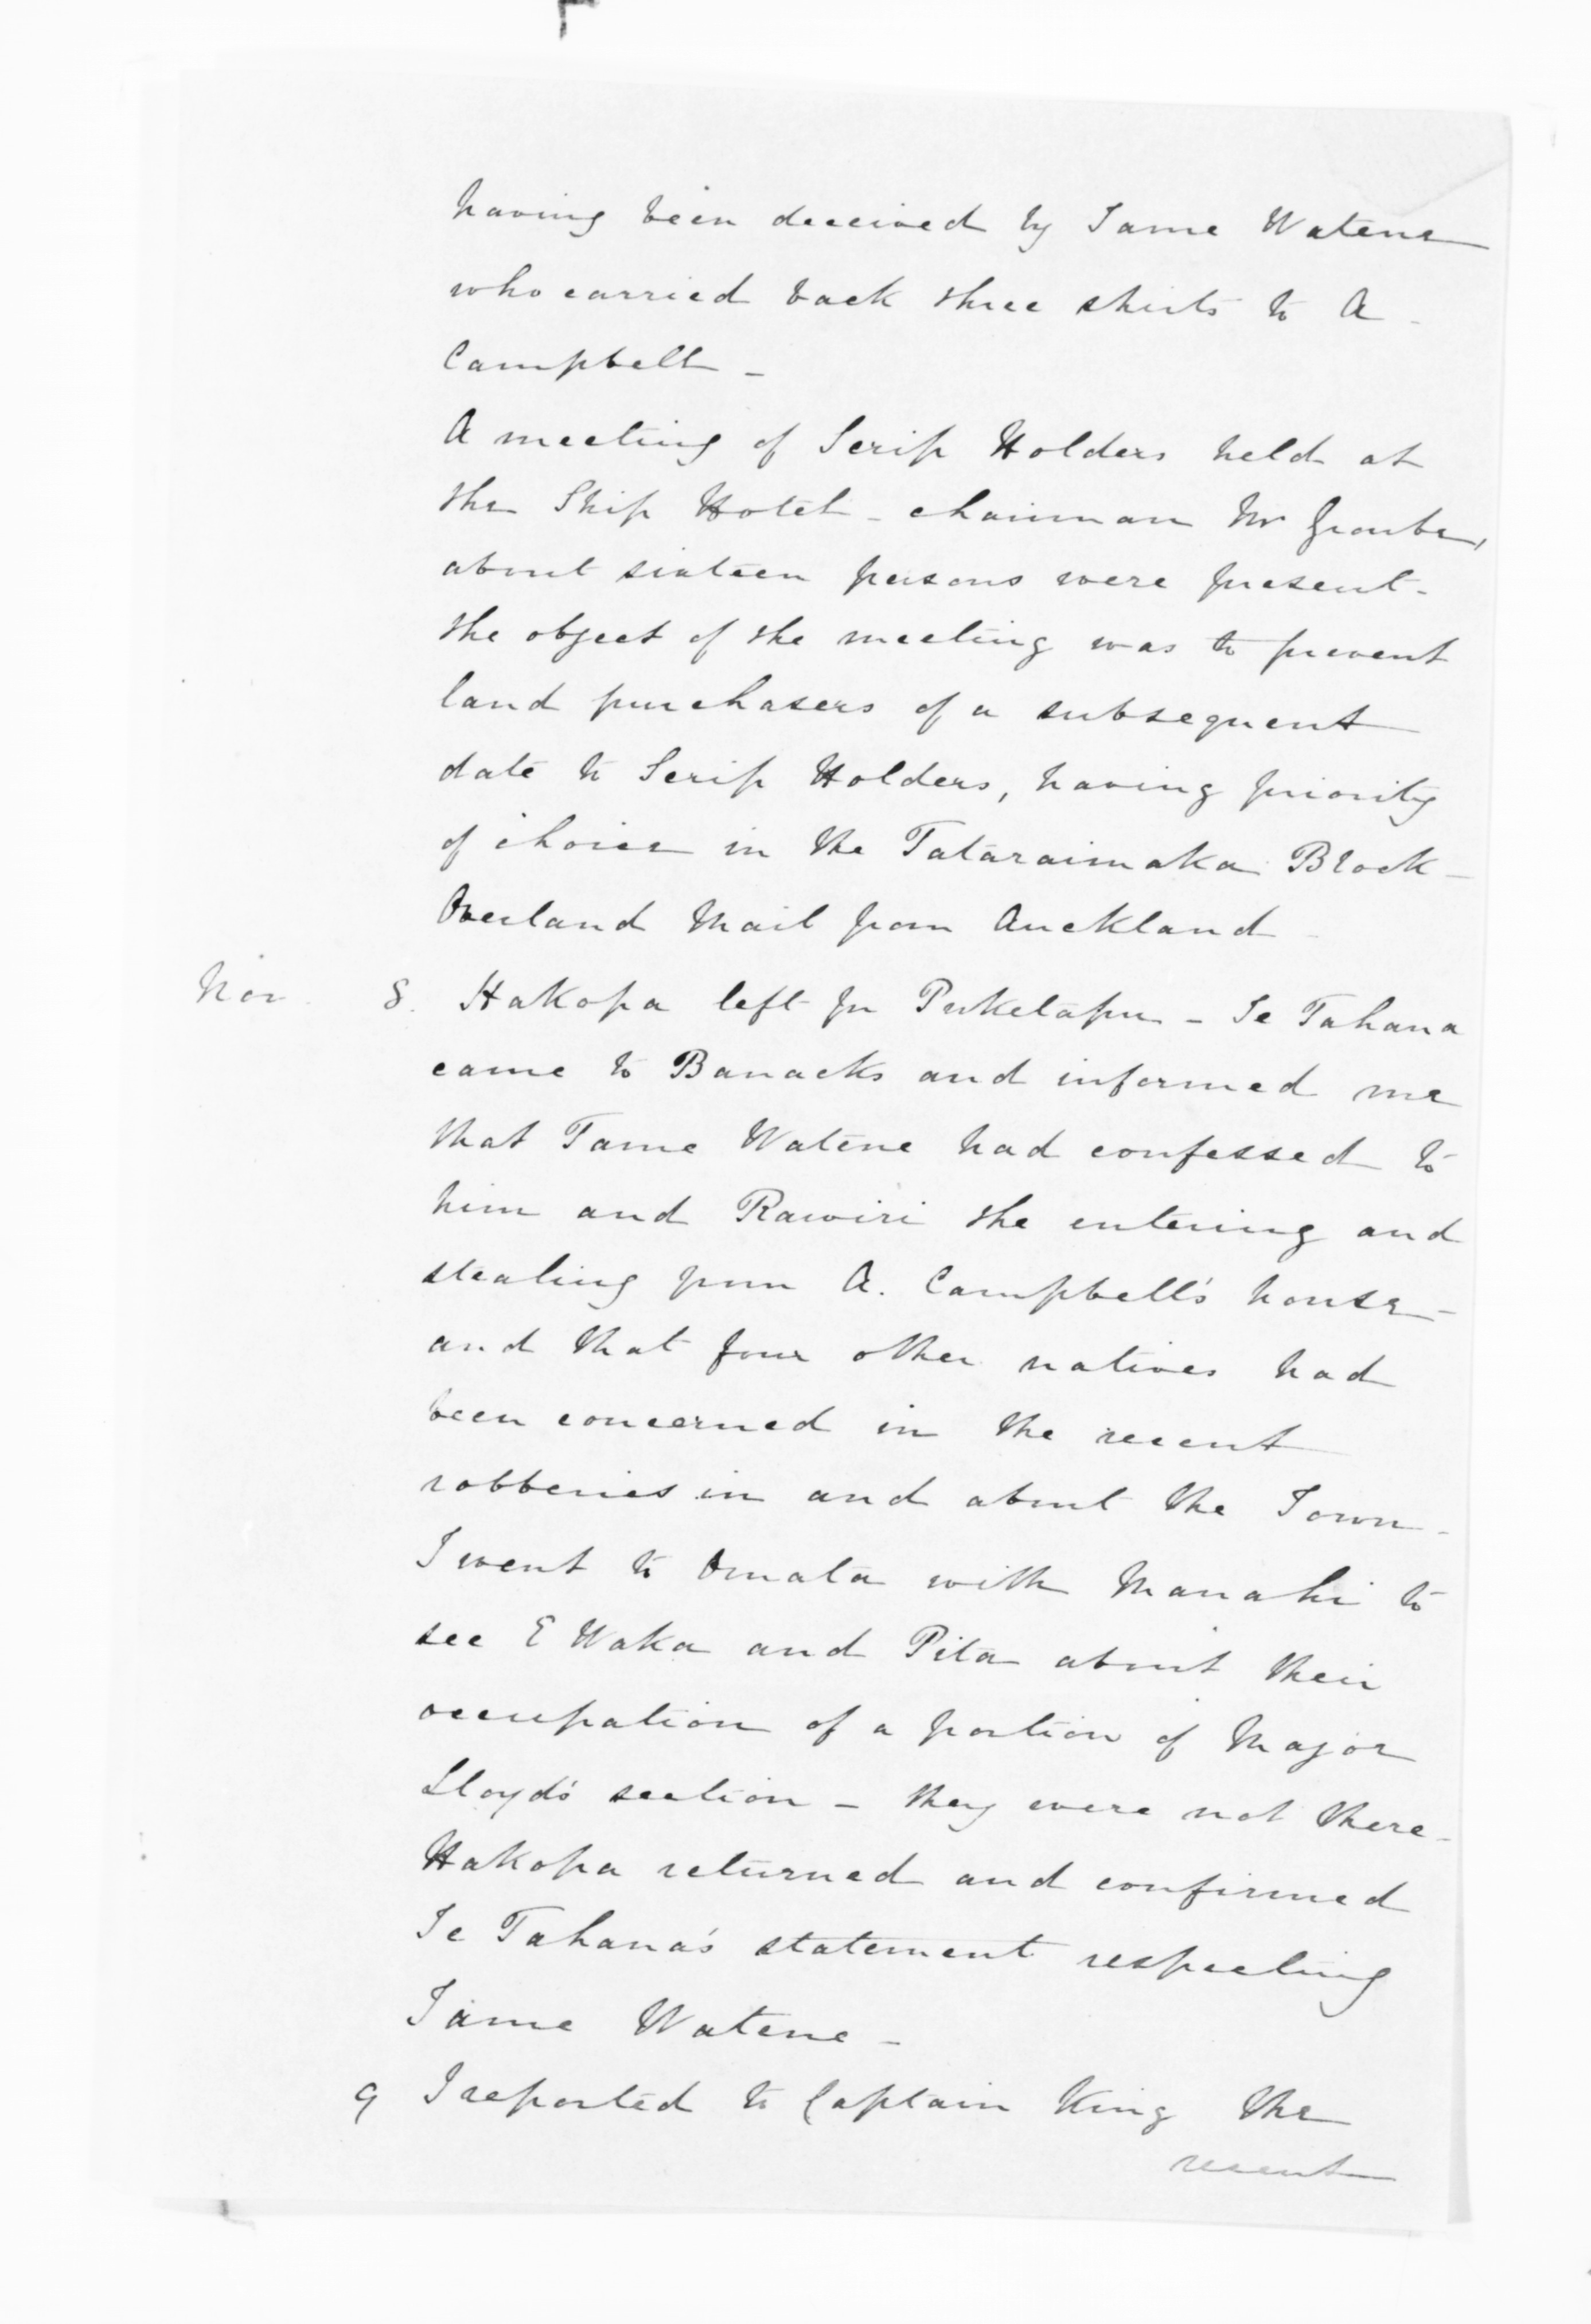 having been deceived by Tame Watene
who carried back three shirts to A
Campbell -
A meeting of Scrip Holders held at
the Ship Hotel - chairman Mr
about sixteen persons were present -
the object of the meeting was to prevent
land purchasers of a subsequent
date to Scrip Holders, having priority
of choice in the Tataraimaka Block -
Overland Mail from Auckland -
Nov. 8. Hakopa left for Puketapu - Te Tahana
came to Banacks and informed me
that Tame Watene had confessed to
him and Rawiri the entering and
stealing from A. Campbell's house -
and that four other natives had
been concerned in the recent
robberies in and about the Town -
I went to Omata with Manahi to
see E Waka and Pita about their
occupation of a portion of Major
Lloyd's section - they were not there -
Hakopa returned and confirmed
Te Tahana's statement respecting
Tame Watene -
9 I reported to Captain King the
recent